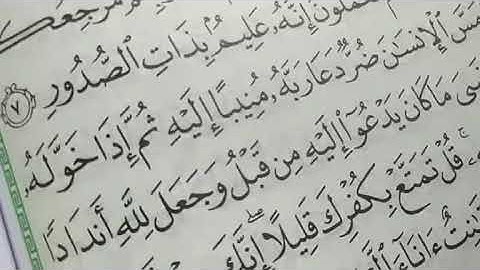 مَّرْجِعُكُمْ
تَعْمَلُونَ إِنَّهُۥ عَلِيمُۢ بِذَاتِ ٱلصُّدُورِ ٧
مَسَّ ٱلْإِنسَٰنَ ضُرٌّ دَعَا رَبَّهُۥ مُنِيبًا إِلَيْهِ ثُمَّ إِذَا خَوَّلَهُۥ
نَسِىَ مَا كَانَ يَدْعُوٓا۟ إِلَيْهِ مِن قَبْلُ وَجَعَلَ لِلَّهِ أَندَادًا
قُلْ تَمَتَّعْ بِكُفْرِكَ قَلِيلًا إِنَّكَ
قَٰنِتٌ ءَانَآءَ